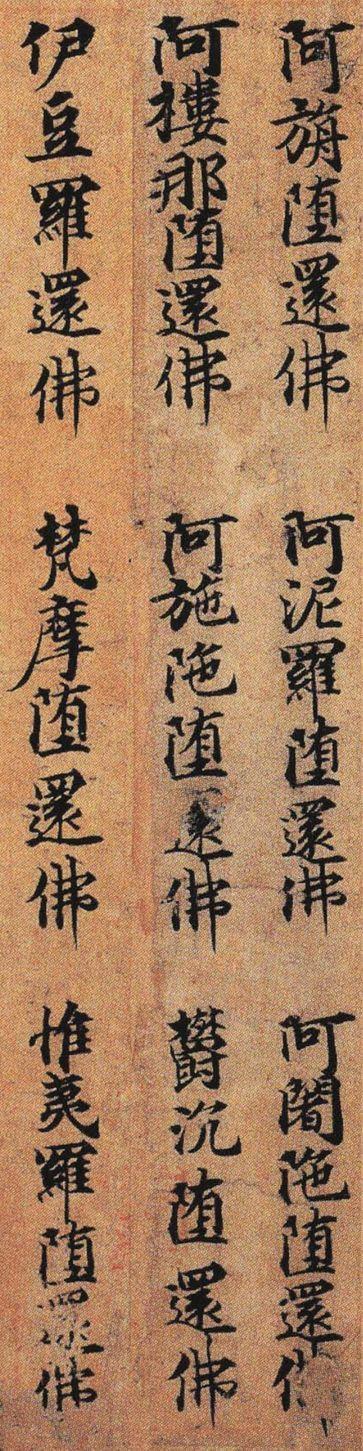 阿旃堕還佛 阿泥羅堕還佛 阿闍陁堕還佛
阿樓那堕還佛 阿施陁堕還佛 欝沉堕還佛
伊豆羅還佛 梵摩堕還佛 惟夷羅堕還佛